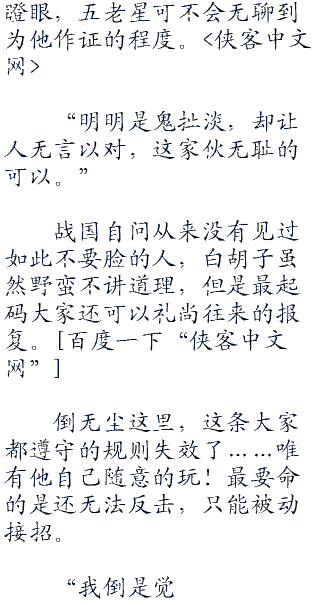 瞪眼，五老星可不会无聊到
为他作证的程度。<侠客中文
网>
“明明是鬼扯淡，却让
人无言以对，这家伙无耻的
可以。”
战国自问从来没有见过
如此不要脸的人，白胡子虽
然野蛮不讲道理，但是最起
码大家还可以礼尚往来的报
复。[百度一下“侠客中文
网”]
倒无尘这里，这条大家
都遵守的规则失效了……唯
有他自己随意的玩！最要命
的是还无法反击，只能被动
接招。
“我倒是觉